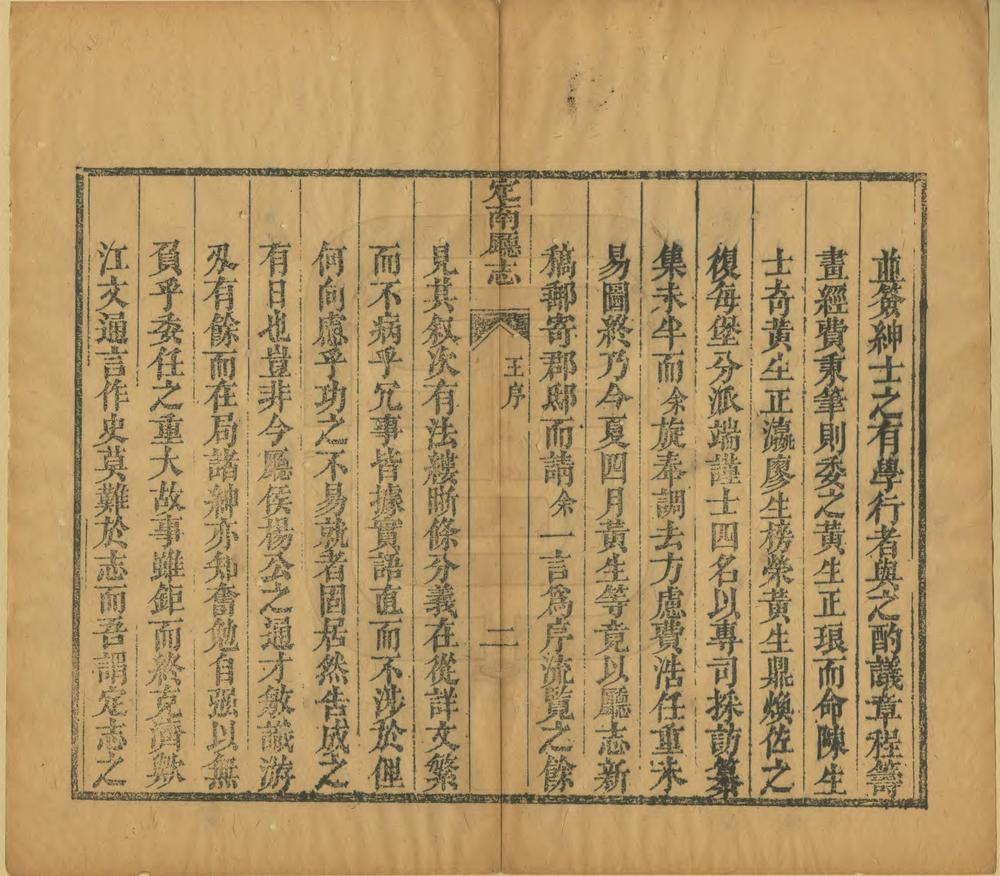 並簽紳士之有學行者與之酌議章程籌
畫經費秉筆則委之黃生正琅而命陳生
士奇黃生正瀛廖生榜榮黃生鼎煥佐之
復每堡分派端謹士四名以專司採訪纂
集未半而余旋奉調去方慮費浩任重未
易圖終乃今夏四月黃生等竟以廳志新
稿郵寄郡邸而請余一言為序流覽之餘
定南廳志
王序
二
見其叙次有法縷晰條分義在從詳文繁
而不病乎冗事皆據實語直而不涉於俚
何向慮乎功之不易就者固居然告成之
有日也豈非今廳侯楊公之通才敏識游
刄有餘而在局諸紳亦知奮勉自强以無
負乎委任之重大故事雖鉅而終克濟歟
江文通言作史莫難於志而吾謂定志之